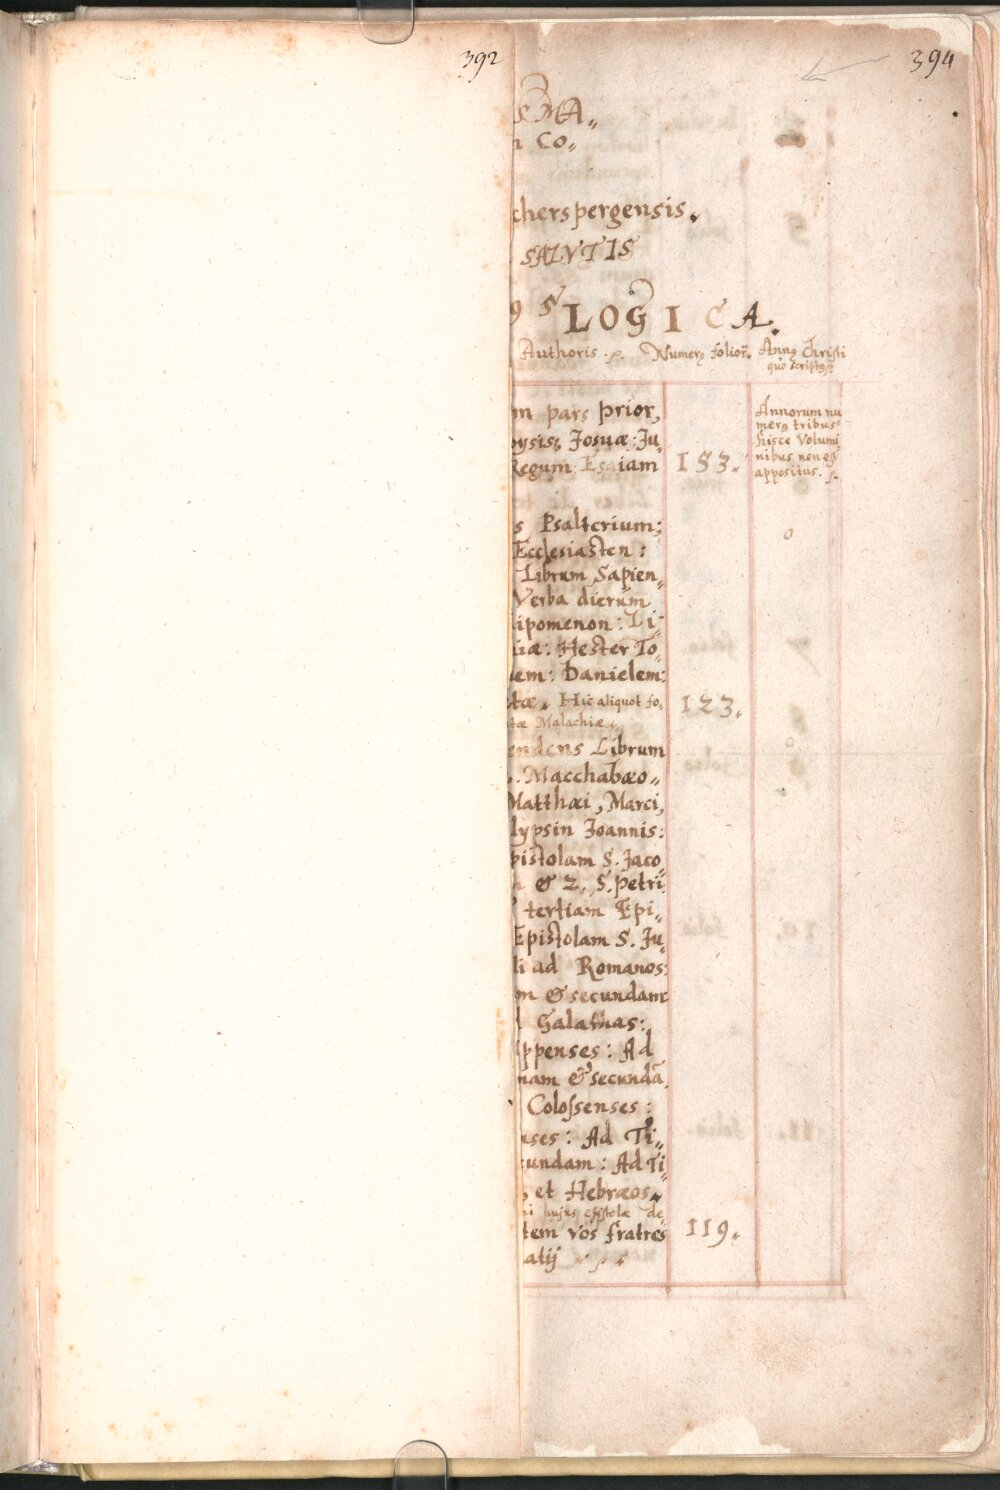 392
394
SMA„
n CO„
cherspergensis.
SALVTIS
LOGICA.
Authoris . Numerꝯ folior. Annꝯ Christi
quo scriptꝯ
m pars prior,
oysis, Josuæ: Ju„
Regum Esaiam
153.
Annorum nu
merꝯ tribus
hisce Volumi
nibus non est
appositus.
s Psalterium;
Ecclesiasten :
Librum Sapien„
Verba dierum
lipomenon: Li„
iæ: Hester To„
em: Danielem:
tæ. Hic aliquot fo„
tæ Malachiæ.
123.
endens Librum
Macchabæo„
Matthæi, Marci,
lypsin Joannis:
pistolam S. Jaco„
& 2. S. Petri:
tertiam Epi„
Epistolam S. Ju„
li ad Romanos:
m & secundam
Galathas:
ppenses: Ad
mam & secundā
Colossenses :
nses: Ad Ti„
cundam: Ad Ti„
, et Hebræos.
hujus epistolæ de
tem vos fratres
atij
119.